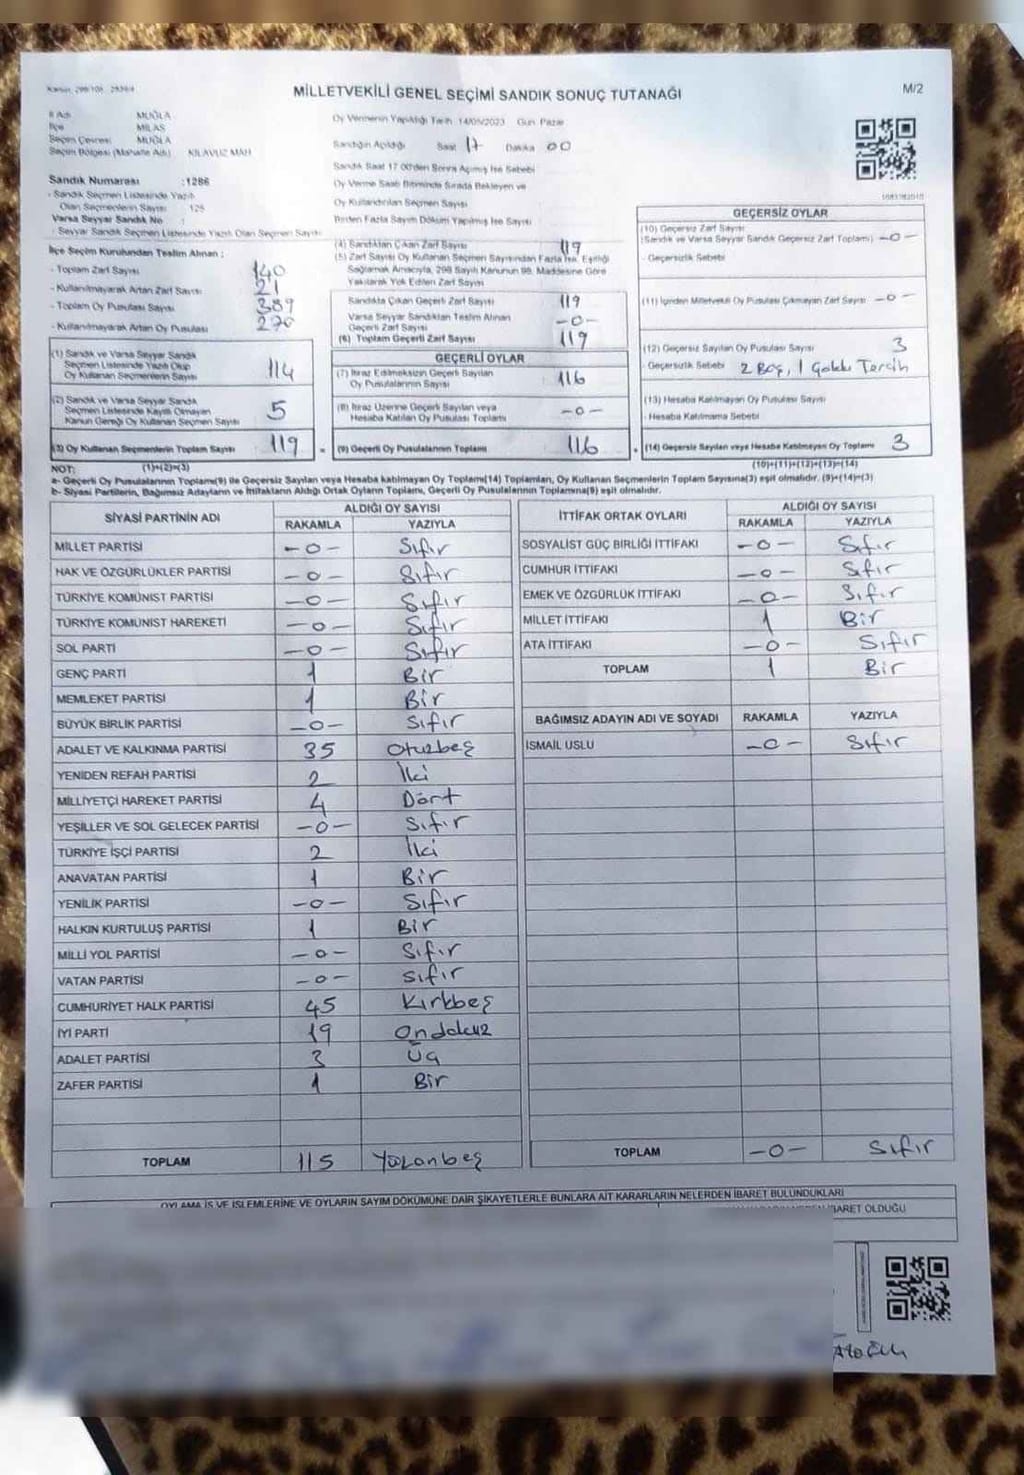 MİLLETVEKİLİ GENEL SEÇİMİ SANDIK SONUÇ TUTANAĞI
M/2
İl Adı MUĞLA
İlçe MİLAS
Seçim Çevresi MUĞLA
Seçim Bölgesi (Mahalle Adı) KILAVUZ MAH
Oy Vermenin Yapıldığı Tarih 14/05/2023 Gün Pazar
Sandığın Açıldığı Saat 17 Dakika 00
Sandık Saat 17.00'den Sonra Açılmış İse Sebebi
Oy Verme Saati Bitiminde Sırada Bekleyen ve
Oy Kullandırılan Seçmen Sayısı
Birden Fazla Sayım Döküm Yapılmış İse Sayısı
Sandık Numarası :1286
- Sandık Seçmen Listesinde Yazılı
Olan Seçmenlerin Sayısı : 125
Varsa Seyyar Sandık No :
- Seyyar Sandık Seçmen Listesinde Yazılı Olan Seçmen Sayısı
İlçe Seçim Kurulundan Teslim Alınan :
- Toplam Zarf Sayısı 140
- Kullanılmayarak Artan Zarf Sayısı 21
- Toplam Oy Pusulası Sayısı 389
- Kullanılmayarak Artan Oy Pusulası 270
(1) Sandık ve Varsa Seyyar Sandık
Seçmen Listesinde Yazılı Olup
Oy Kullanan Seçmenlerin Sayısı 114
(2) Sandık ve Varsa Seyyar Sandık
Seçmen Listesinde Kayıtlı Olmayan
Kanun Gereği Oy Kullanan Seçmen Sayısı 5
(3) Oy Kullanan Seçmenlerin Toplam Sayısı 119
(4) Sandıktan Çıkan Zarf Sayısı 119
(5) Zarf Sayısı Oy Kullanan Seçmen Sayısından Fazla İse, Eşitliği
Sağlamak Amacıyla, 298 Sayılı Kanunun 98. Maddesine Göre
Yakılarak Yok Edilen Zarf Sayısı
Sandıkta Çıkan Geçerli Zarf Sayısı 119
Varsa Seyyar Sandıktan Teslim Alınan
Geçerli Zarf Sayısı -0-
(6) Toplam Geçerli Zarf Sayısı 119
GEÇERLİ OYLAR
(7) İtiraz Edilmeksizin Geçerli Sayılan
Oy Pusulalarının Sayısı 116
(8) İtiraz Üzerine Geçerli Sayılan veya
Hesaba Katılan Oy Pusulası Toplamı -0-
= (9) Geçerli Oy Pusulalarının Toplamı 116
GEÇERSİZ OYLAR
(10) Geçersiz Zarf Sayısı
(Sandık ve Varsa Seyyar Sandık Geçersiz Zarf Toplamı) -0-
- Geçersizlik Sebebi
(11) İçinden Milletvekili Oy Pusulası Çıkmayan Zarf Sayısı -0-
(12) Geçersiz Sayılan Oy Pusulası Sayısı 3
- Geçersizlik Sebebi 2 Boş, 1 Çoklu Tercih
(13) Hesaba Katılmayan Oy Pusulası Sayısı
- Hesaba Katılmama Sebebi
+ (14) Geçersiz Sayılan veya Hesaba Katılmayan Oy Toplamı 3
NOT: (1)+(2)=(3) (10)+(11)+(12)+(13)=(14)
a- Geçerli Oy Pusulalarının Toplamı(9) ile Geçersiz Sayılan veya Hesaba katılmayan Oy Toplamı(14) Toplamları, Oy Kullanan Seçmenlerin Toplam Sayısına(3) eşit olmalıdır. (9)+(14)=(3)
b- Siyasi Partilerin, Bağımsız Adayların ve İttifakların Aldığı Ortak Oyların Toplamı, Geçerli Oy Pusulalarının Toplamına(9) eşit olmalıdır.
SİYASİ PARTİNİN ADI ALDIĞI OY SAYISI
RAKAMLA YAZIYLA
MİLLET PARTİSİ -0- Sıfır
HAK VE ÖZGÜRLÜKLER PARTİSİ -0- Sıfır
TÜRKİYE KOMÜNİST PARTİSİ -0- Sıfır
TÜRKİYE KOMÜNİST HAREKETİ -0- Sıfır
SOL PARTİ -0- Sıfır
GENÇ PARTİ 1 Bir
MEMLEKET PARTİSİ 1 Bir
BÜYÜK BİRLİK PARTİSİ -0- Sıfır
ADALET VE KALKINMA PARTİSİ 35 Otuzbeş
YENİDEN REFAH PARTİSİ 2 İki
MİLLİYETÇİ HAREKET PARTİSİ 4 Dört
YEŞİLLER VE SOL GELECEK PARTİSİ -0- Sıfır
TÜRKİYE İŞÇİ PARTİSİ 2 İki
ANAVATAN PARTİSİ 1 Bir
YENİLİK PARTİSİ -0- Sıfır
HALKIN KURTULUŞ PARTİSİ 1 Bir
MİLLİ YOL PARTİSİ -0- Sıfır
VATAN PARTİSİ -0- Sıfır
CUMHURİYET HALK PARTİSİ 45 Kırkbeş
İYİ PARTİ 19 Ondokuz
ADALET PARTİSİ 3 Üç
ZAFER PARTİSİ 1 Bir
TOPLAM 115 Yüzonbeş
İTTİFAK ORTAK OYLARI ALDIĞI OY SAYISI
RAKAMLA YAZIYLA
SOSYALİST GÜÇ BİRLİĞİ İTTİFAKI -0- Sıfır
CUMHUR İTTİFAKI -0- Sıfır
EMEK VE ÖZGÜRLÜK İTTİFAKI -0- Sıfır
MİLLET İTTİFAKI 1 Bir
ATA İTTİFAKI -0- Sıfır
TOPLAM 1 Bir
BAĞIMSIZ ADAYIN ADI VE SOYADI RAKAMLA YAZIYLA
İSMAİL USLU -0- Sıfır
TOPLAM -0- Sıfır
OYLAMA İŞ VE İŞLEMLERİNE VE OYLARIN SAYIM DÖKÜMÜNE DAİR ŞİKAYETLERLE BUNLARA AİT KARARLARIN NELERDEN İBARET BULUNDUKLARI
İBARET OLDUĞU